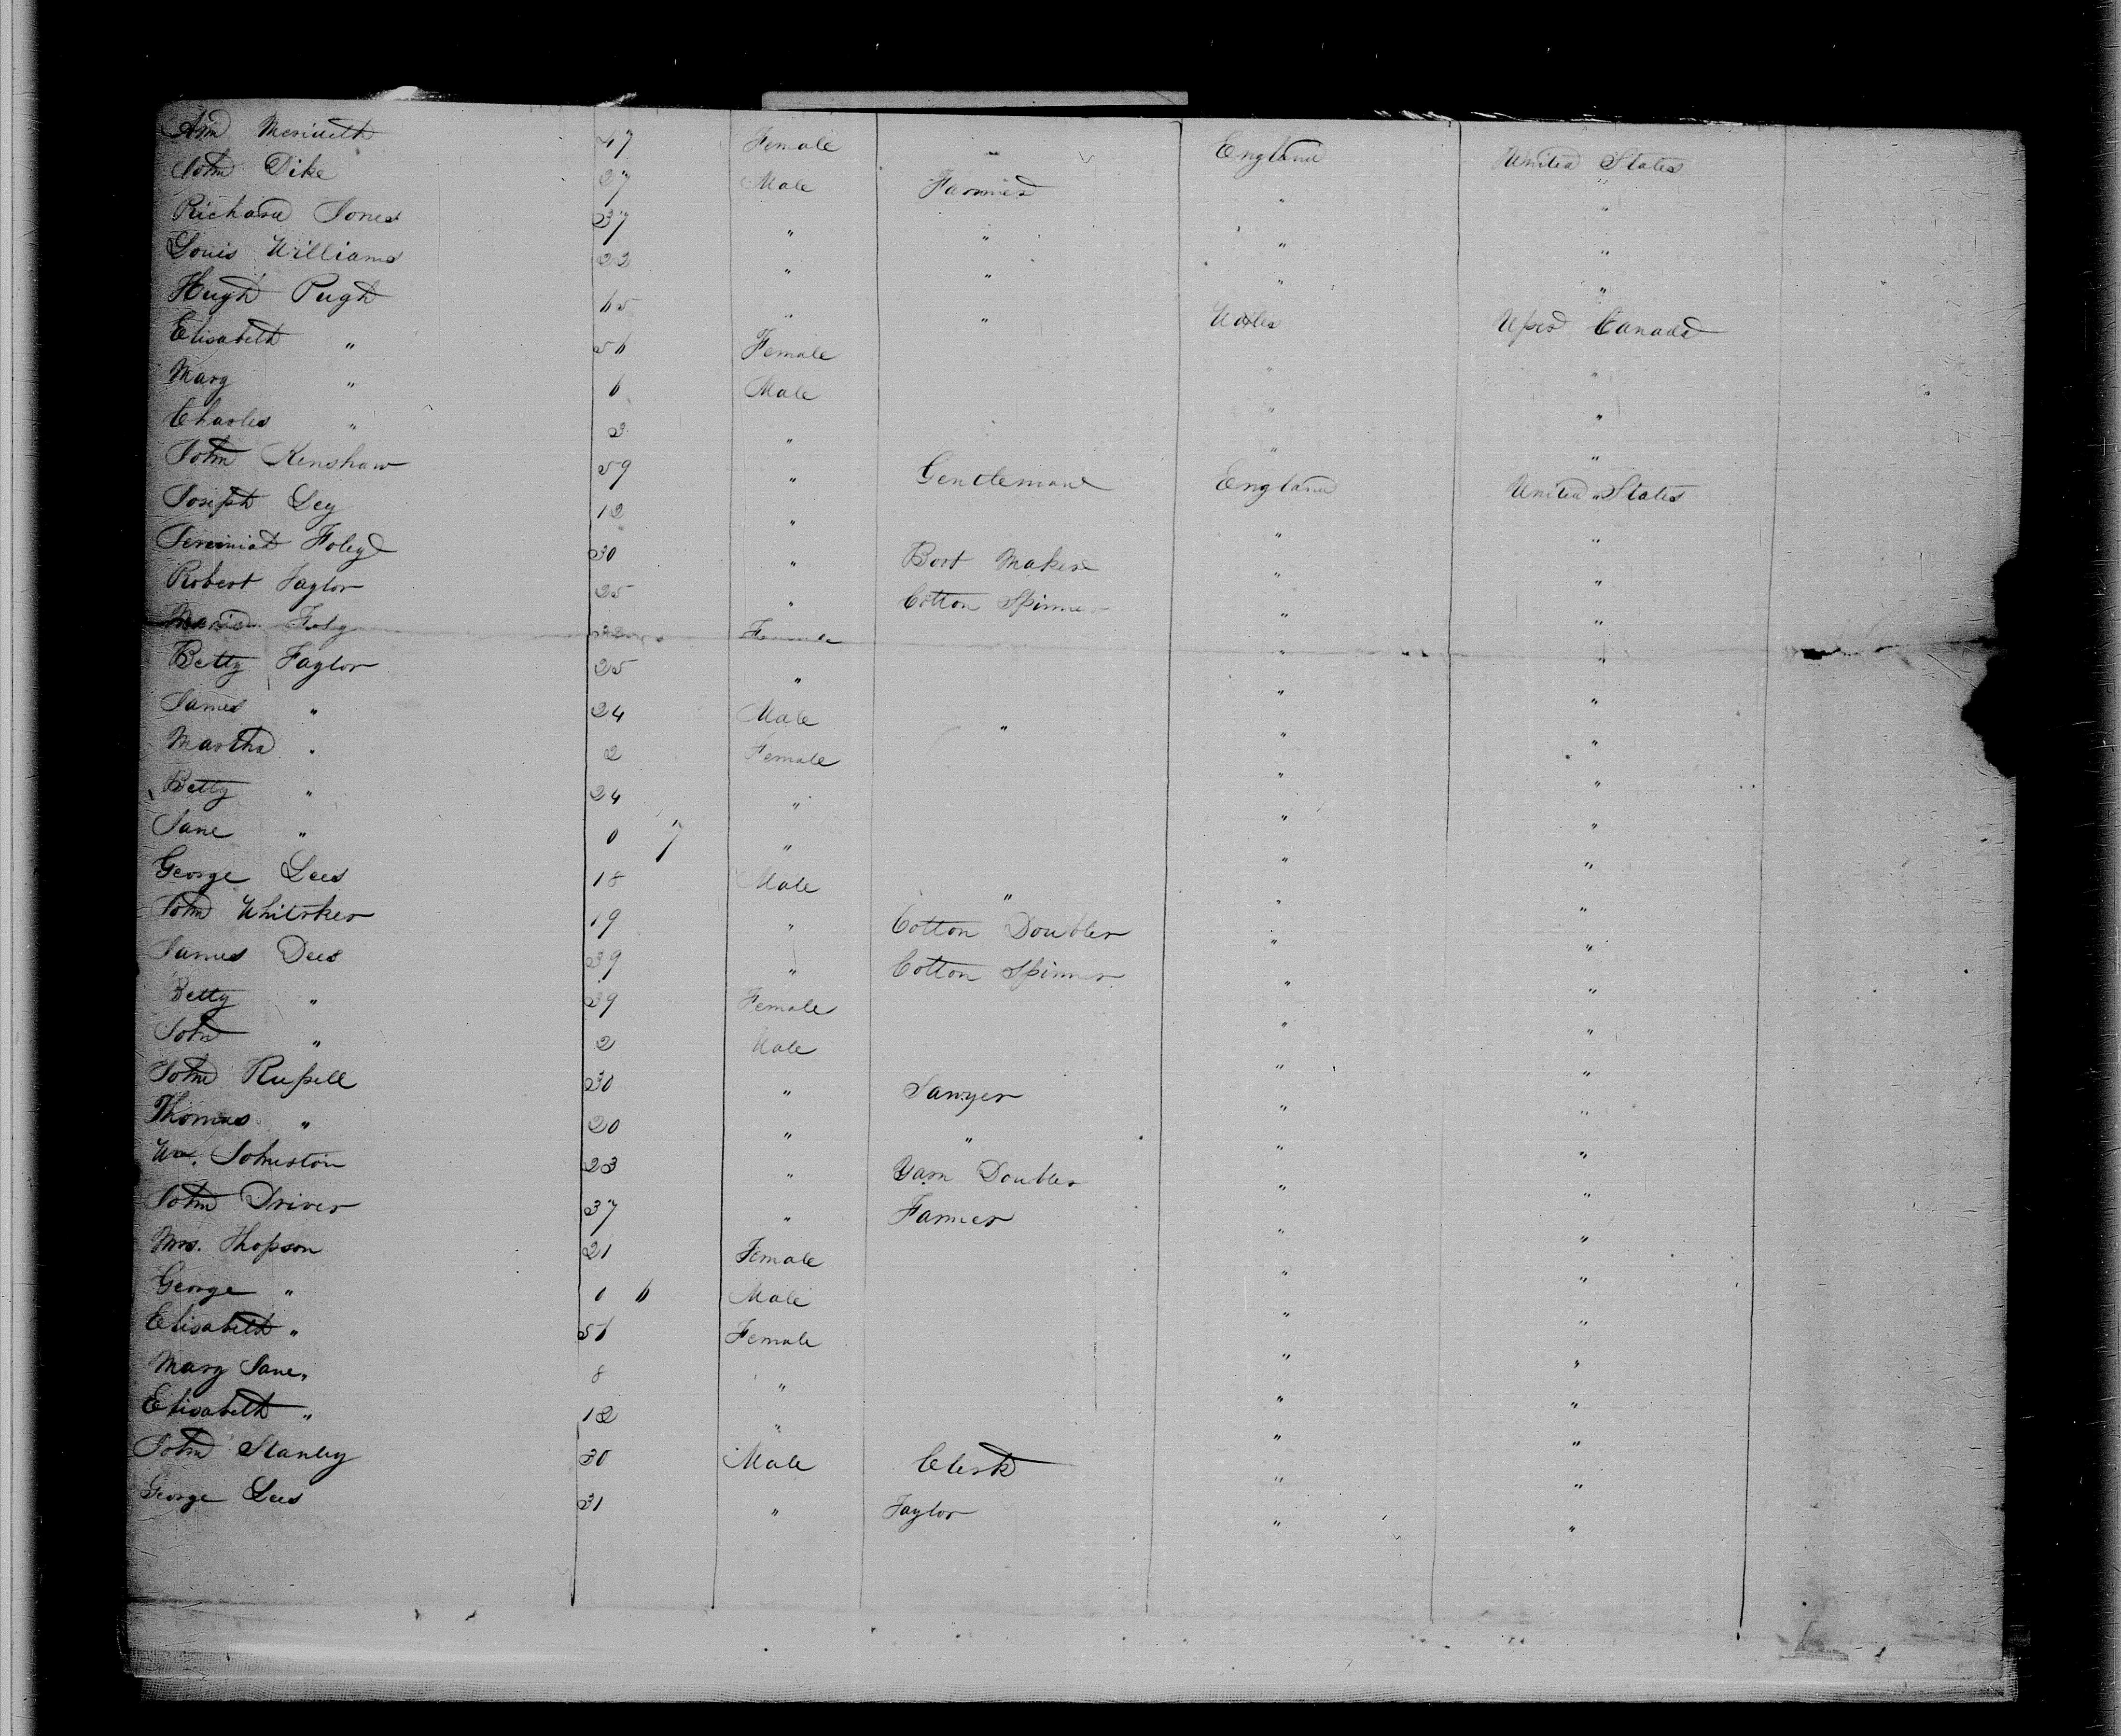 Ann Merideth 47 Female " England United States
John Dike 27 Male Farmer " "
Richard Jones 37 " " " "
Louis Williams 22 " " " "
Hugh Pugh 65 " " Wales Uper Canada
Elisabeth " 56 Female " "
Mary " 6 Male " "
Charles " 2 " " "
John Renshaw 59 " Gentleman England United States
Joseph Ley 12 " " "
Jeremiah Foley 30 " Boot Maker " "
Robert Taylor 25 " Cotton Spinner " "
Maria Foly Female " "
Betty Taylor 25 " " "
James " 24 Male " " "
Martha " 2 Female " "
Betty " 24 " " "
Jane " 0 7 " " "
George Lees 18 Male " " "
John Whitaker 19 " Cotton Doubler " "
James Dees 39 " Cotton Spinner " "
Betty " 39 Female " "
John " 2 Male " "
John Russell 30 " Sawyer " "
Thomas " 20 " " " "
Wm. Johnston 23 " Yarn Doubler " "
John Driver 37 " Farmer " "
Mrs. Thopson 21 Female " "
George " 0 6 Male " "
Elisabeth " 51 Female " "
Mary Jane " 8 " " "
Elisabeth " 12 " " "
John Stanley 30 Male Clerk " "
George Lees 31 " Taylor " "